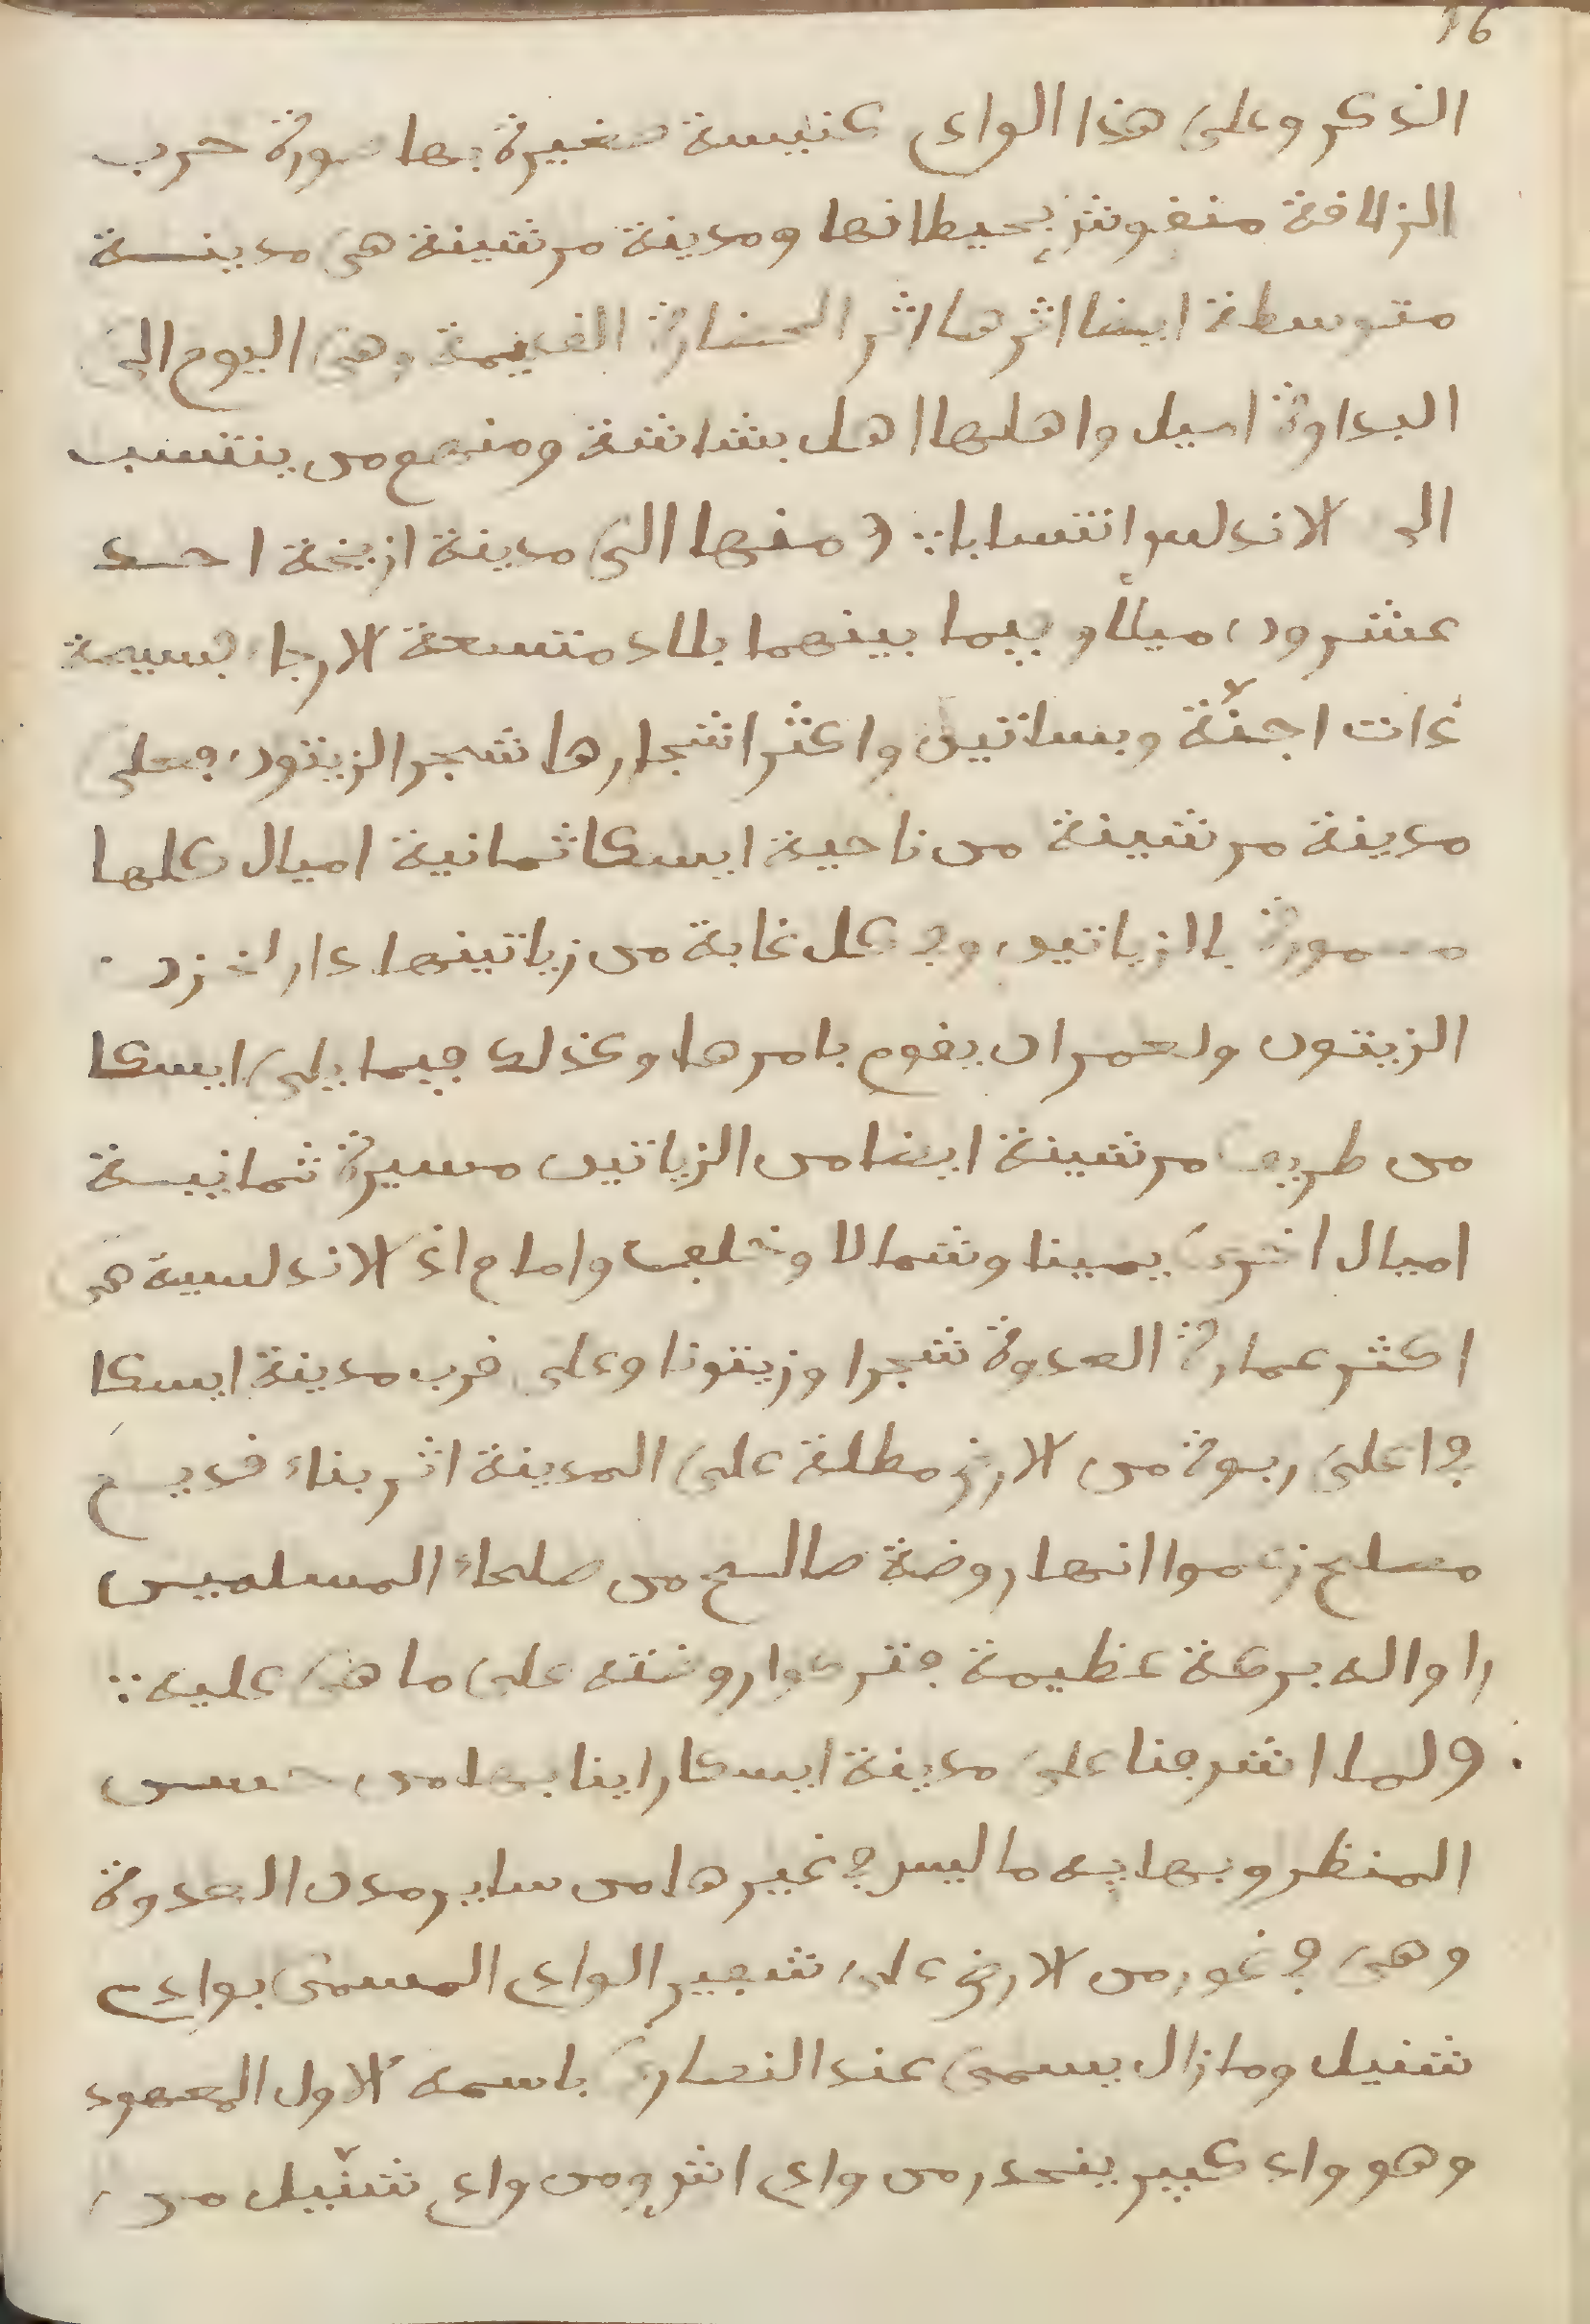 16
الذكر وعلى هذا الواد كنيسة صغيرة بها صورة حرب
الزلافة منقوش بحيطانها ومدينة مرشينة هي مدينة
متوسطة ايضا اثرها اثر الحضارة القديمة وهي اليوم الى
البداوة اميل واهلها اهل بشاشة ومنهم من ينتسب
الى الاندلس انتسابا ومنها الى مدينة ازيخة احد
عشرون ميلا وبيما بينهما بلاد متسعة الارجا بسيمة
ذات اجنّة وبساتين واكثر اشجارها شجر الزيتون فعلى
مدينة مرشينة من ناحية ايسكا ثمانية اميال كلها
معمورة بالزياتين وفي كل غابة من زياتينها دار لخزن
الزيتون ولعمران يقوم بامرها وكذلك فيما يلي ايسكا
من طريق مرشينة ايضا من الزياتين مسيرة ثمانية
اميال اخرى يمينا وشمالا وخلف وامام اذ الاندلسية هي
اكثر عمارة العدوة شجرا وزيتونا وعلى قرب مدينة ايسكا
في اعلى ربوة من الارض مطلة على المدينة اثر بناء قديم
مسلم زعموا انها روضة صالح من صلحاء المسلمين
راوا له بركة عظيمة فتركوا روضته على ما هي عليه
ولما اشرفنا على مدينة ايسكا راينا بها من حسن
المنظر وبهايه ما ليس في غيرها من ساير مدن العدوة
وهي في غور من الارض على شفير الواد المسمى بوادي
شنيل ومازال يسمى عند النصارى باسمه الاول المعهود
وهو واد كبير ينحدر من وادي اش ومن واد شنّيل من